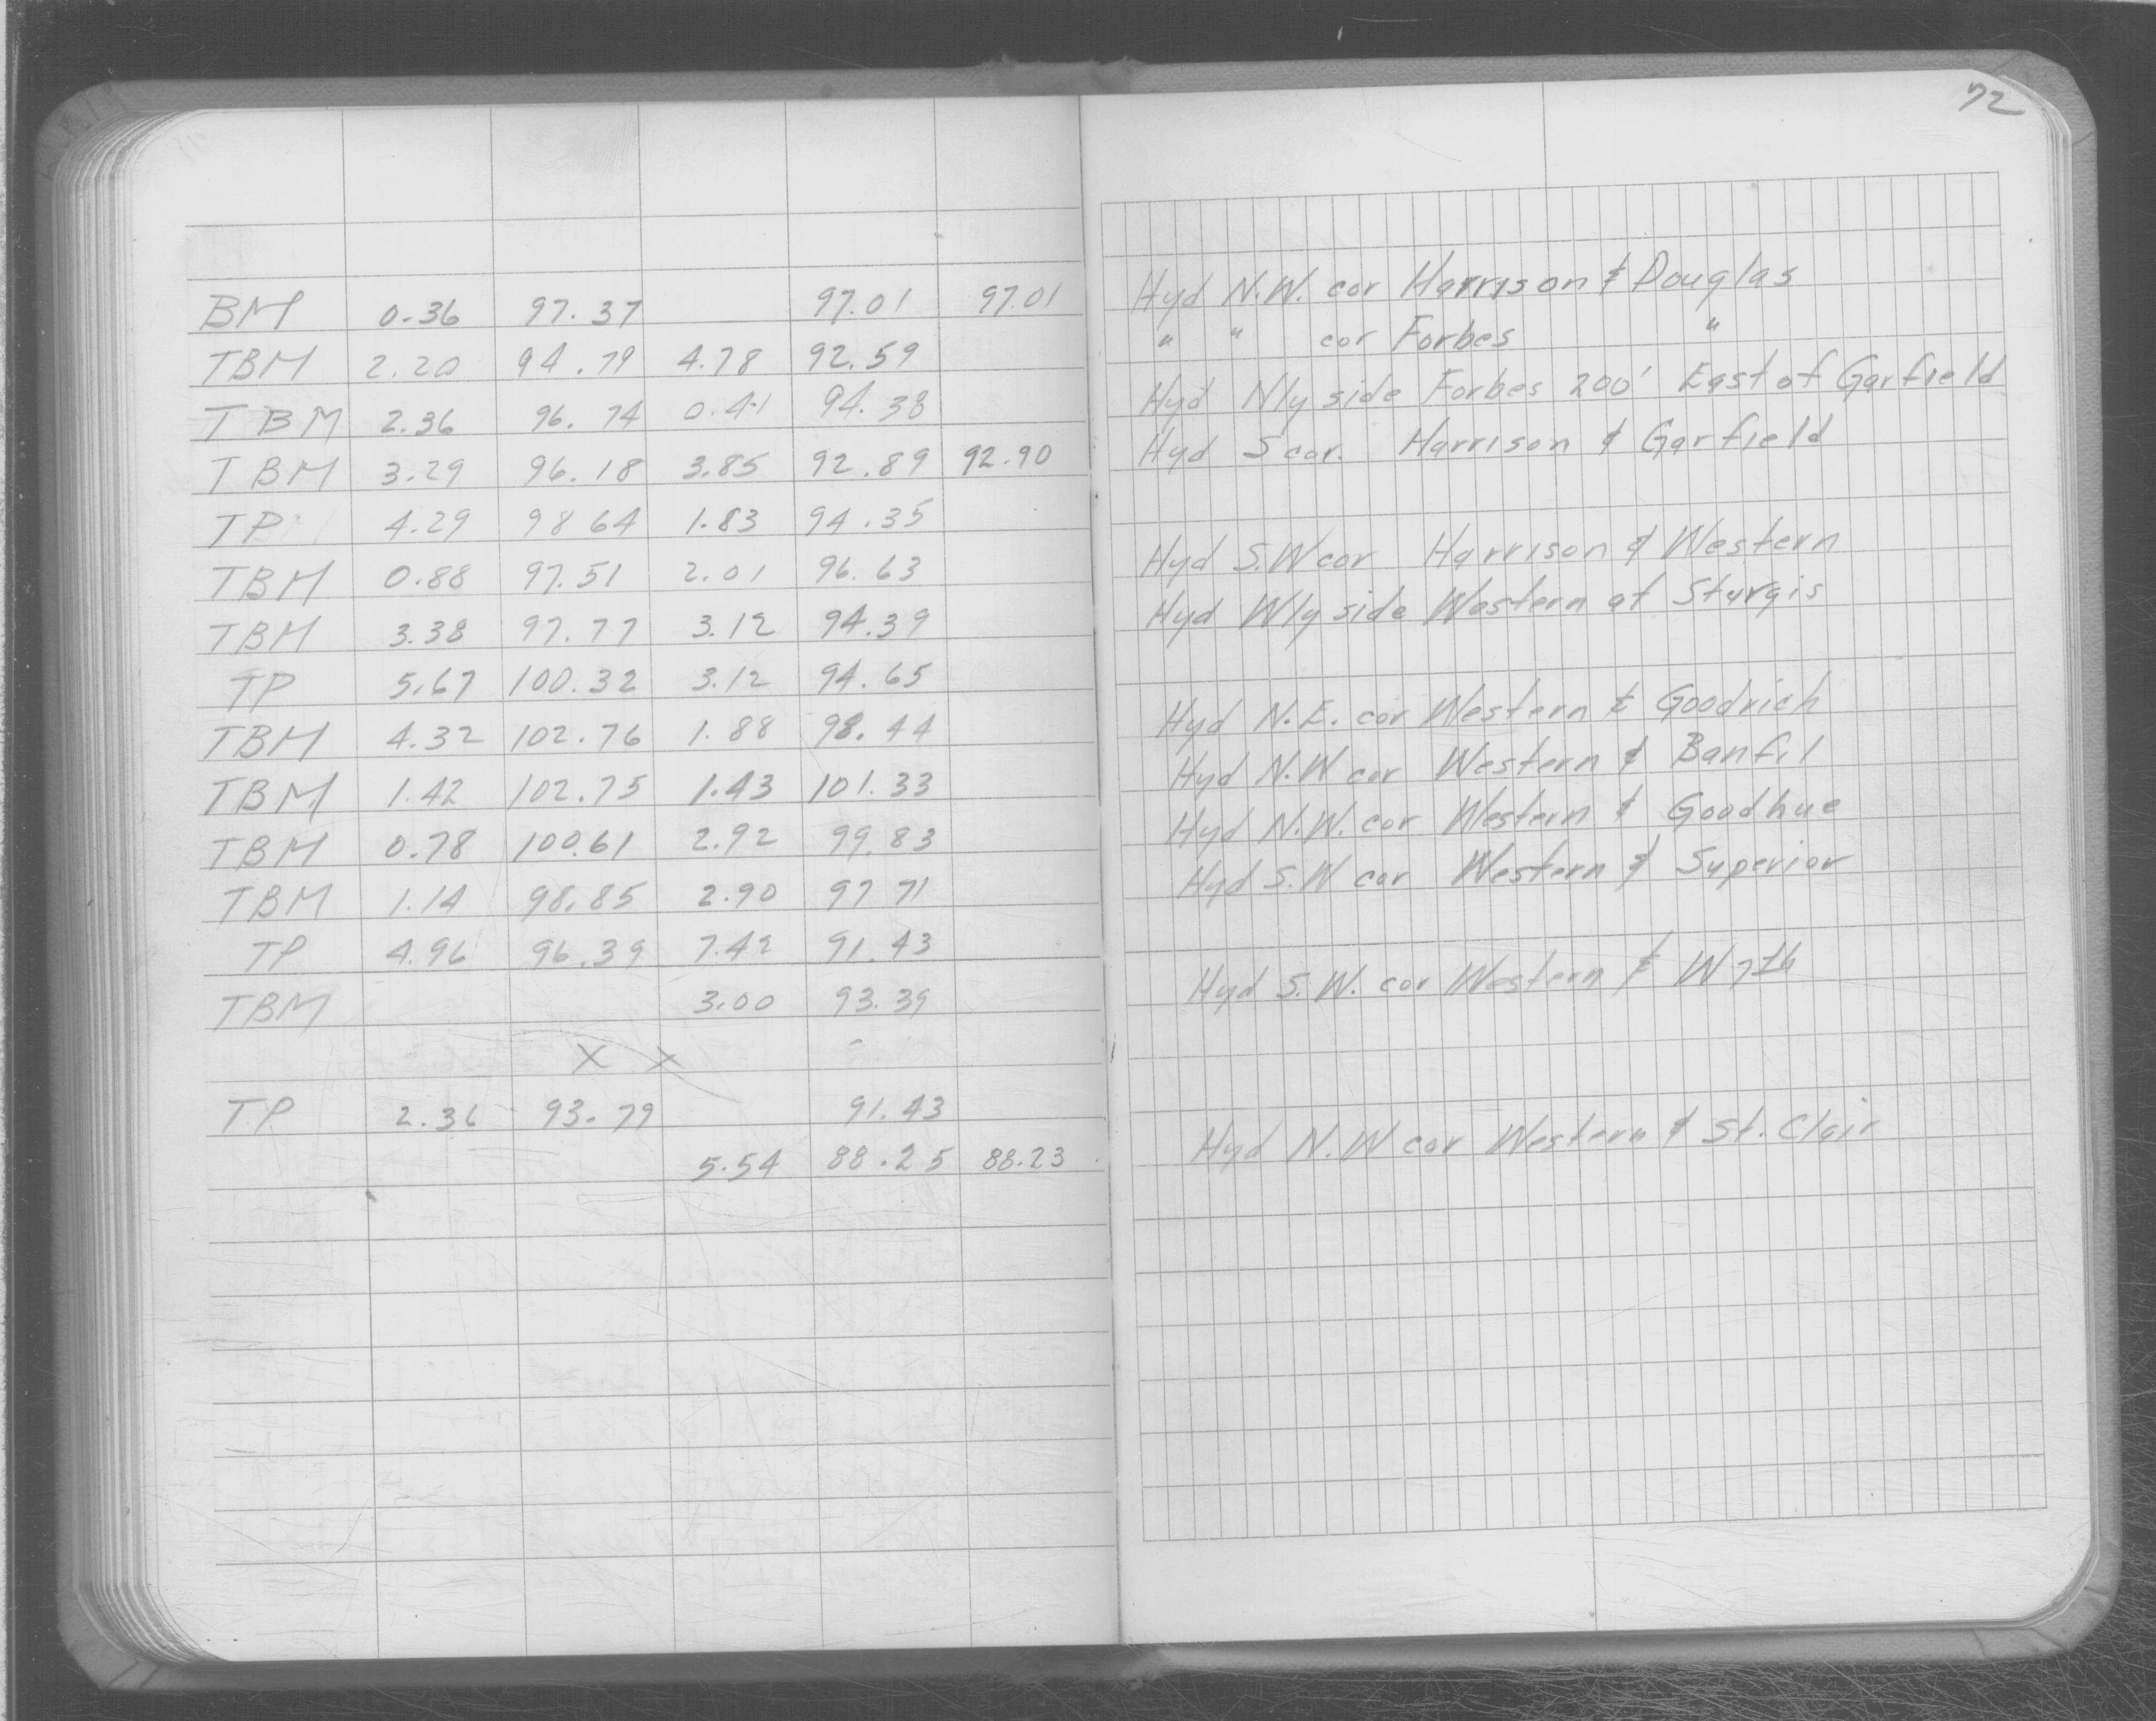 72
BM 0.36 97.37 97.01 97.01 Hyd N.W. cor Harrison & Douglas
TBM 2.20 94.79 4.78 92.59 " " cor Forbes "
TBM 2.36 96.74 0.41 94.38 Hyd Nly side Forbes 200' East of Garfield
TBM 3.29 96.18 3.85 92.89 92.90 Hyd S cor. Harrison & Garfield
TP 4.29 98 64 1.83 94.35
TBM 0.88 97.51 2.01 96.63 Hyd S.W cor Harrison & Western
TBM 3.38 97.77 3.12 94.39 Hyd Wly side Western at Sturgis
TP 5.67 100.32 3.12 94.65
TBM 4.32 102.76 1.88 98.44 Hyd N.E. cor Western & Goodrich
TBM 1.42 102.75 1.43 101.33 Hyd N.W cor Western & Banfil
TBM 0.78 100.61 2.92 99.83 Hyd N.W. cor Western & Goodhue
TBM 1.14 98.85 2.90 97 71 Hyd S.W cor Western & Superior
TP 4.96 96.39 7.42 91.43
TBM 3.00 93.39 Hyd S.W. cor Western & W 7th
X X
TP 2.36 93.79 91.43
5.54 88.25 88.23 Hyd N.W cor Western & St. Clair